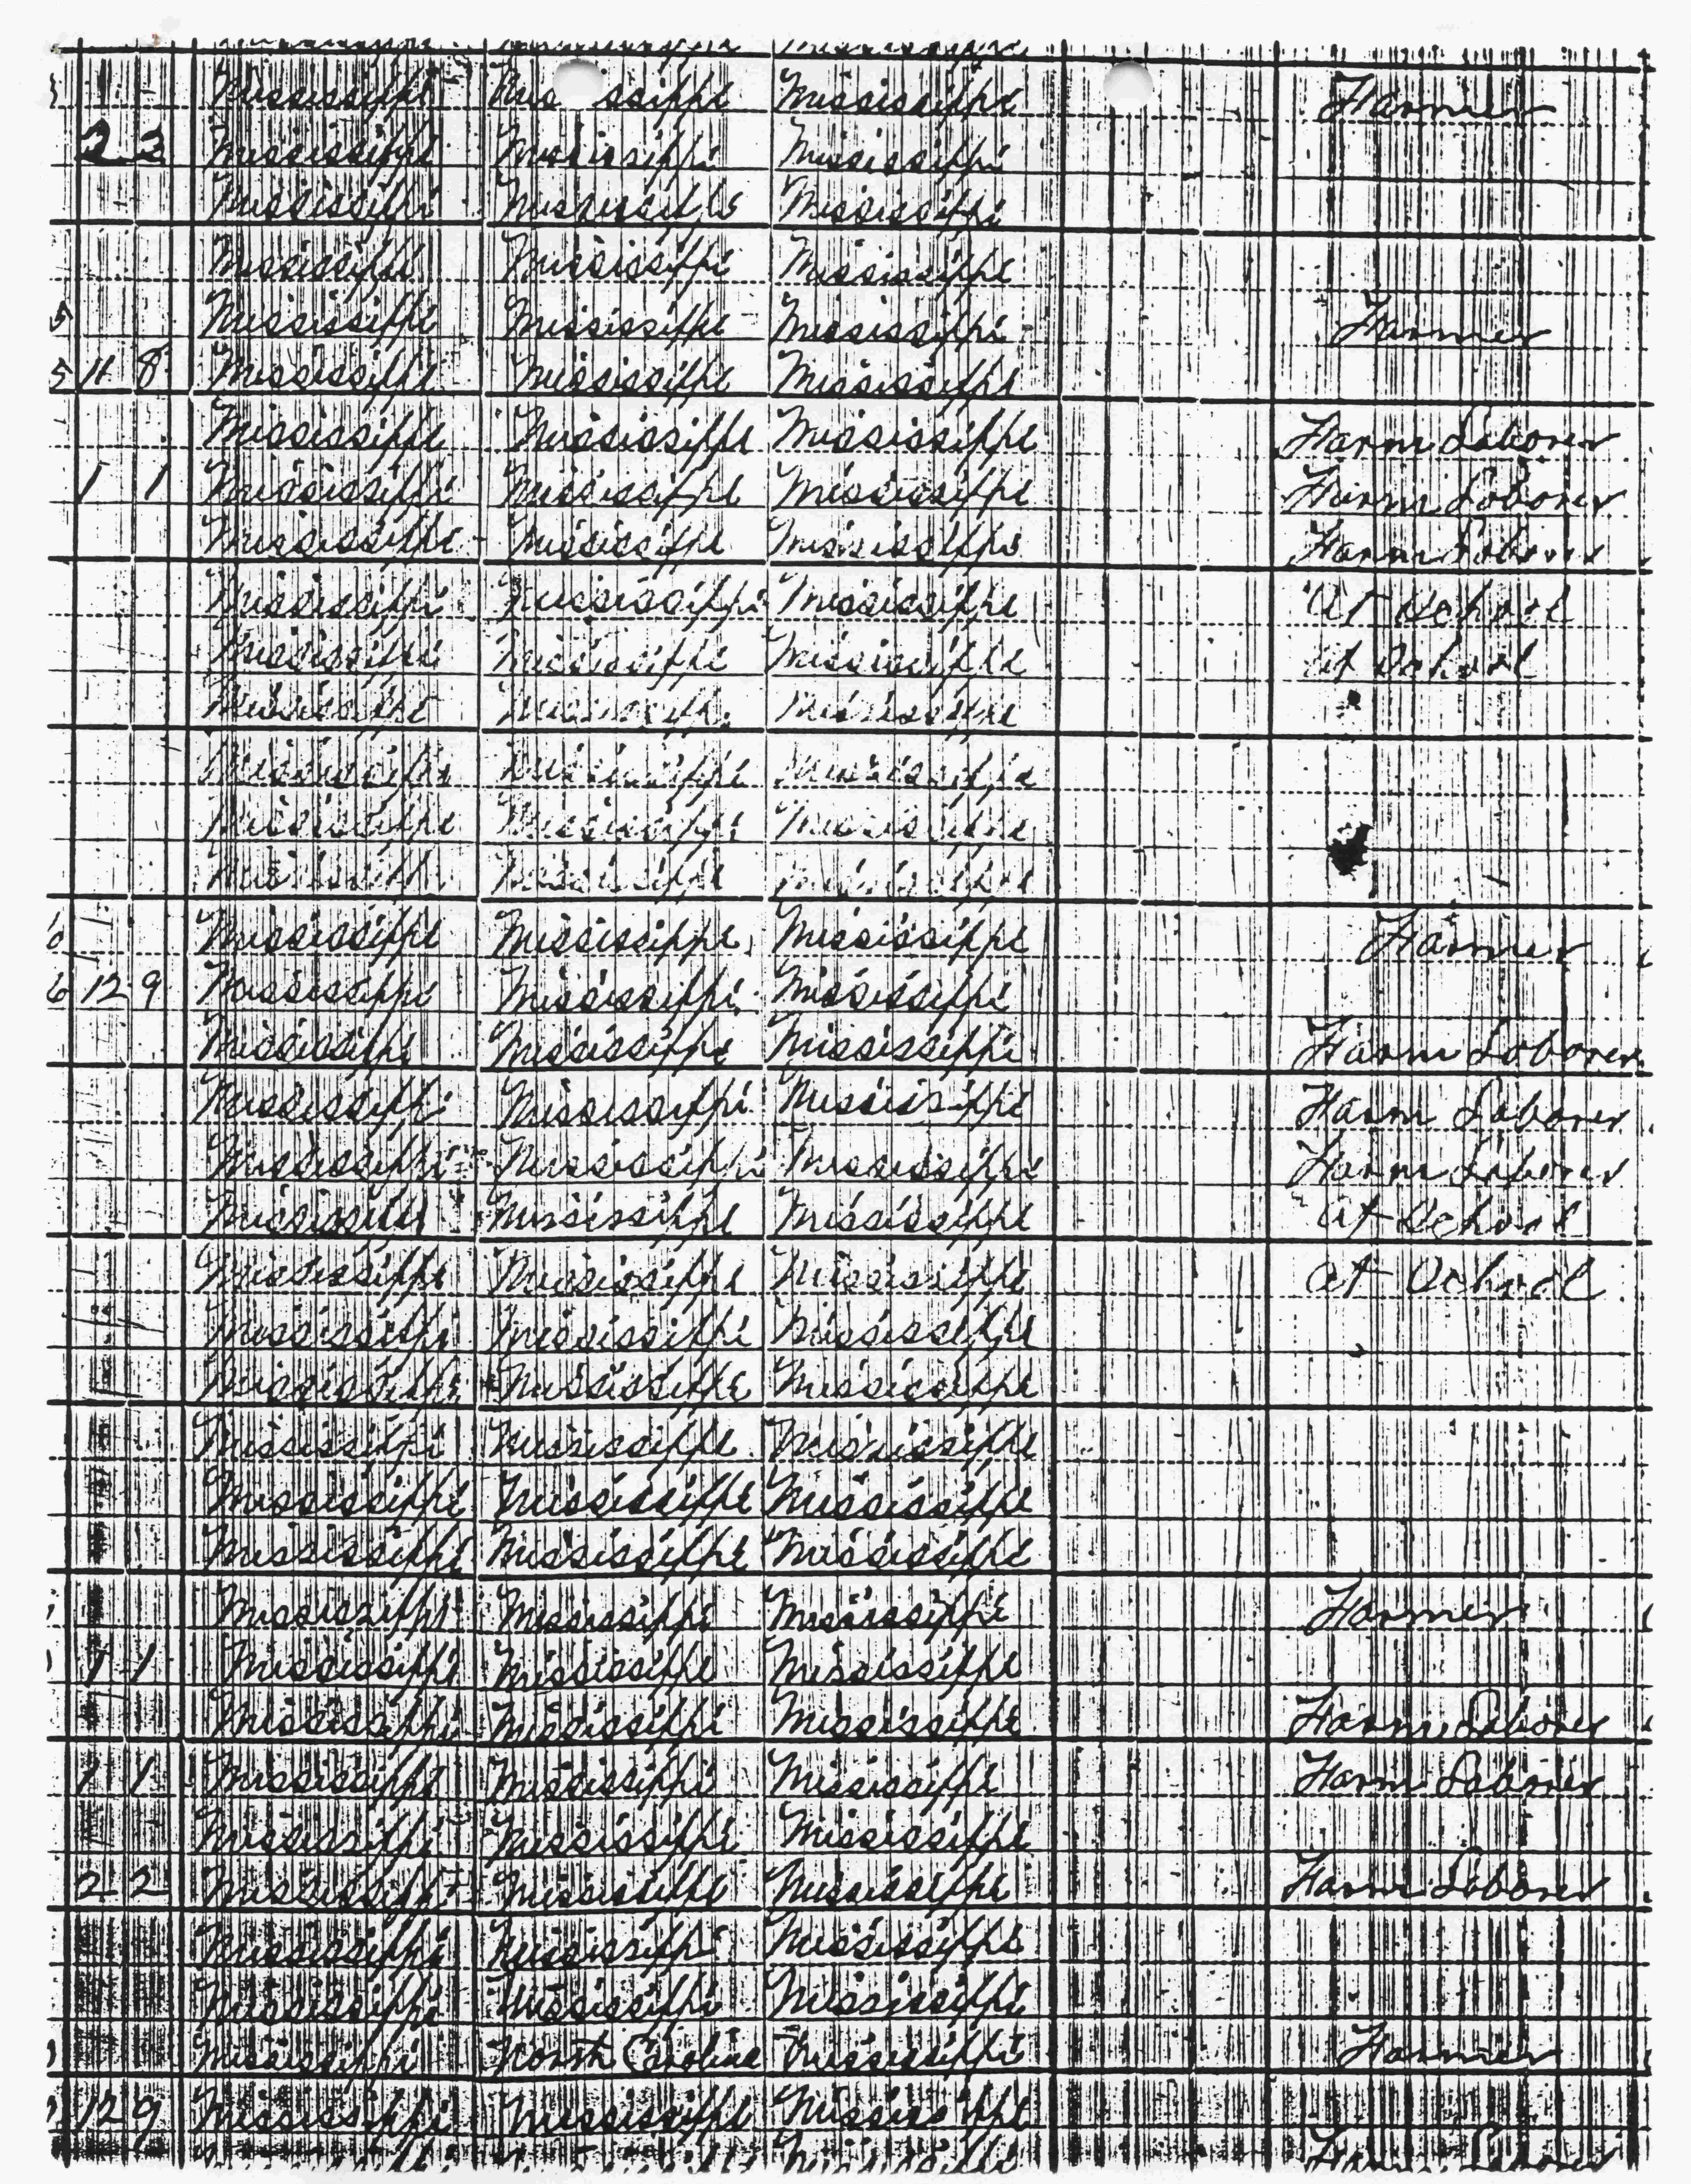 Mississippi Mississippi Mississippi Farmer
2 2 Mississippi Mississippi Mississippi
Mississippi Mississippi Mississippi
Mississippi Mississippi Mississippi
5 Mississippi Mississippi Mississippi Farmer
5 11 8 Mississippi Mississippi Mississippi
Mississippi Mississippi Mississippi Farm Laborer
1 1 Mississippi Mississippi Mississippi Farm Laborer
Mississippi Mississippi Mississippi Farm Laborer
Mississippi Mississippi Mississippi At School
Mississippi Mississippi Mississippi At School
Mississippi Mississippi Mississippi
Mississippi Mississippi Mississippi
Mississippi Mississippi Mississippi
Mississippi Mississippi Mississippi
6 Mississippi Mississippi Mississippi Farmer
6 12 9 Mississippi Mississippi Mississippi
Mississippi Mississippi Mississippi Farm Laborer
Mississippi Mississippi Mississippi Farm Laborer
Mississippi Mississippi Mississippi Farm Laborer
Mississippi Mississippi Mississippi At School
Mississippi Mississippi Mississippi At School
Mississippi Mississippi Mississippi
Mississippi Mississippi Mississippi
Mississippi Mississippi Mississippi
Mississippi Mississippi Mississippi
Mississippi Mississippi Mississippi
Mississippi Mississippi Mississippi Farmer
1 1 Mississippi Mississippi Mississippi
Mississippi Mississippi Mississippi Farm Laborer
1 1 Mississippi Mississippi Mississippi Farm Laborer
Mississippi Mississippi Mississippi
2 2 Mississippi Mississippi Mississippi Farm Laborer
Mississippi Mississippi Mississippi
Mississippi Mississippi Mississippi
Mississippi North Carolina Mississippi Farmer
12 9 Mississippi Mississippi Mississippi
Farm Laborer